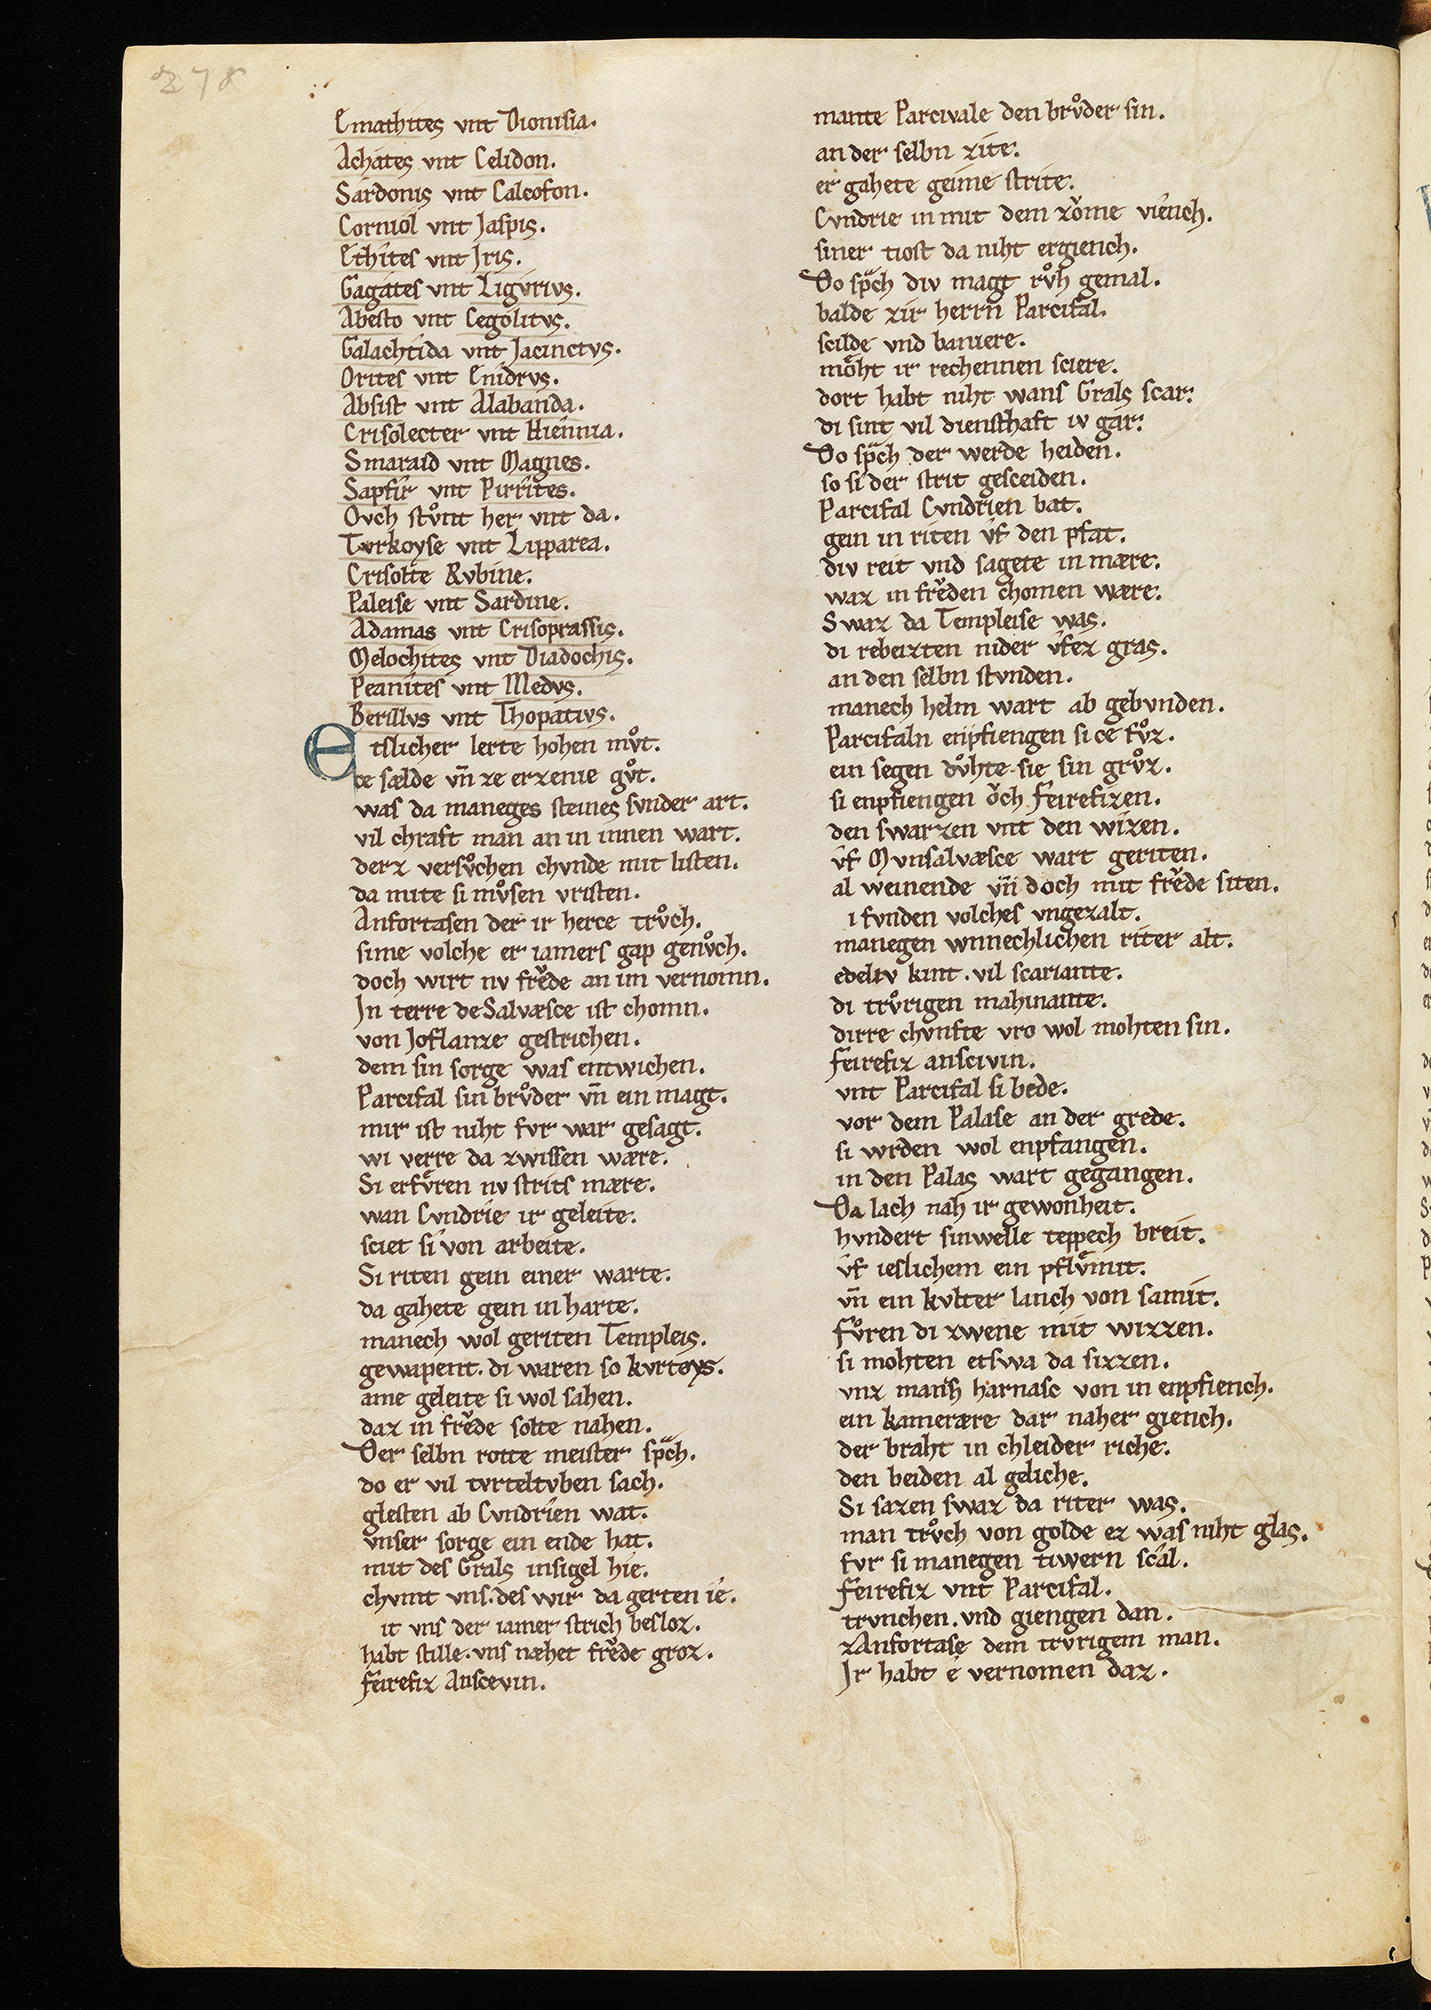 278
Emathites vnt Dionisia.
Achates vnt Celidon.
Sardonis vnt Calcofon.
Corniol vnt Jaspis.
Ethites vnt Jris.
Gagátes vnt Ligvrivs.
Abesto vnt Cegolitvs.
Galachtida vnt Jacinctvs.
Orites vnt Enidrvs.
Absist vnt Alabanda.
Crisolecter vnt Hiennia.
Smaraid vnt Magnes.
Sapfir vnt Pirrites.
Ovch stvͦnt her vnt da.
Tvrkoyse vnt Lipparea.
Crisolte Rvbine.
Paleise vnt Sardine.
Adamas vnt Crisoprassis.
Melochites vnt Diadochis.
Peanites vnt Medvs.
Berillvs vnt Thopativs.
Etslicher lerte hohen mvͦt.
ce sælde vn̄ ze erzenie gvͦt.
was da maneges steines svnder art.
vil chraft man an in innen wart.
derz versvͦchen chvnde mit listen.
da mite si mvͦsen vristen.
Anfortasen der ir herce trvͦch.
sime volche er iamers gap genvͦch.
doch wirt nv frᷓde an im vernomn.
Jn terre de Salvæsce ist chomn.
von Joflanze gestrichen.
dem sin sorge was entwichen.
Parcifal sin brvͦder vn̄ ein magt.
mir ist niht fvr war gesagt.
wi verre da zwissen wære.
Si erfvͤren nv strits mære.
wan Cvndrie ir geleite.
sciet si von arbeite.
Si riten gein einer warte.
da gahete gein in harte.
manech wol geriten Templeis.
gewapent. di waren so kvrtoys.
ame geleite si wol sahen.
daz in frᷓde solte nahen.
Der selbn rotte meister spᷓch.
do er vil tvrteltvben sach.
glesten ab Cvndrien wat.
vnser sorge ein ende hat.
mit des Grals insigel hie.
chvmt vns. des wir da gerten ie.
it vns der iamer strich besloz.
habt stille. vns næhet frᷓde groz.
feirefiz Anscevin.
mante Parcivale den brvͦder sin.
an der selbn zite.
er gahete geime strite.
Cvndrie in mit dem zoͮme viench.
siner tiost da niht ergiench.
Do spᷓch div magt rvͦh gemal.
balde zir herrn Parcifal.
scilde vnd baniere.
moͤht ir rechennen sciere.
dort habt niht wans Grals scar.
di sint vil diensthaft iv gar.
Do spᷓch der werde heiden.
so si der strit gesceiden.
Parcifal Cvndrien bat.
gein in riten v̂f den pfat.
div reit vnd sagete in mære.
waz in frᷓden chomen wære.
Swaz da Templeise was.
di rebeizten nider v̂fez gras.
an den selbn stvnden.
manech helm wart ab gebvnden.
Parcifaln enpfiengen si ce fvͦz.
ein segen dvͦhte sie sin grvͦz.
si enpfiengen oͮch feirefizen.
den swarzen vnt den wizen.
v̂f Mvnsalvæsce wart geriten.
al weinende vn̄ doch mit frᷓde siten.
i fvnden volches vngezalt.
manegen wnnechlichen riter alt.
edeltv kint. vil scariante.
di trvͦrigen mahinante.
dirre chvnfte vro wol mohten sin.
feirefiz anscivin.
vnt Parcifal si bede.
vor dem Palase an der grede.
si wrden wol enpfangen.
in den Palas wart gegangen.
Da lach nah ir gewonheit.
hvndert sinwelle teppech breit.
v̂f ieslichem ein pflvͤmit.
vn̄ ein kvlter lanch von samit.
fvͦren di zwene mit wizzen.
si mohten etswa da sizzen.
vnz mansh harnasc von in enpfiench.
ein kamerære dar naher giench.
der braht in chleider riche.
den beiden al geliche.
Si sazen swaz da riter was.
man trvͦch von golde ez was niht glas.
fvr si manegen tiwern scal.
feirefiz vnt Parcifal.
trvnchen. vnd giengen dan.
zAnfortase dem trvrigem man.
Jr habt é vernomen daz.